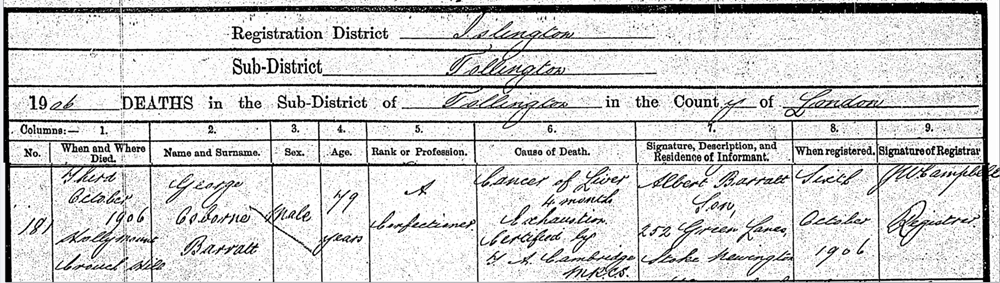 Registration District Islington
Sub-District Tollington
1906 DEATHS in the Sub-District of Tollington in the County of London
Columns:— 1. 2. 3. 4. 5. 6. 7. 8. 9.
No. When and Where Died. Name and Surname. Sex. Age. Rank or Profession. Cause of Death. Signature, Description, and Residence of Informant. When registered. Signature of Registrar
181
Third
October
1906
Hollymount
Crouch Hill
George
Osborne
Barratt
Male
79
years
A
Confectioner
Cancer of Liver
4 months
Exhaustion
Certified by
F. A. Cambridge
M.R.C.S.
Albert Barratt
Son,
252 Green Lanes,
Stoke Newington
Sixth
October
1906
J W Campbell
Registrar